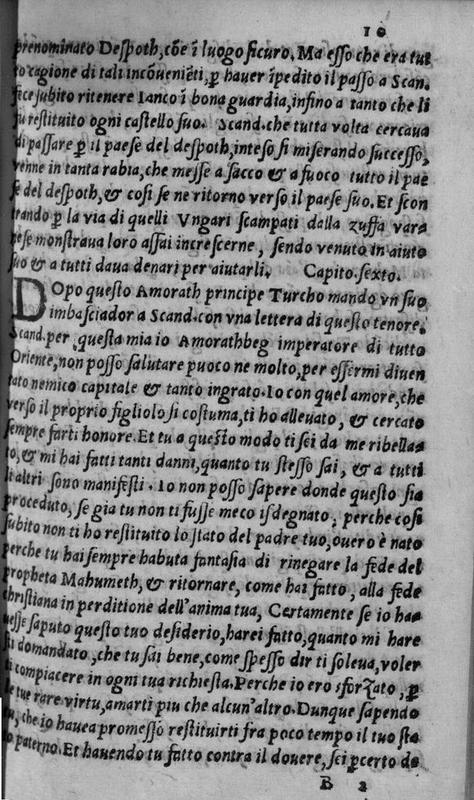 10
prenominato Despoth, cõe ĩ luogo sicuro. Ma esso che era tut
to cagione di tali incõueniẽti, ꝑ hauer ĩpedito il passo a Scan.
fece subito ritenere Ianco ĩ bona guardia, infino a tanto che li
fu restituito ogni castello suo. Scand. che tutta volta cercaua
di passare ꝑ il paese del despoth, inteso si miserando successo,
venne in tanta rabia, che messe a sacco & a fuoco tutto il pae
se del despoth, & cosi se ne ritorno verso il paese suo. Et scon
trando ꝑ la via di quelli Vngari scampati dalla zuffa vara
nese monstraua loro assai increscerne, sendo venuto in aiuto
suo & a tutti daua denari per aiutarli. Capito. sexto.
DOpo questo Amorath principe Turcho mando vn suo
imbasciador a Scand. con vna lettera di questo tenore.
Scand. per questa mia io Amorathbeg imperatore di tutto
Oriente, non posso salutare puoco ne molto, per essermi diuen
tato nemico capitale & tanto ingrato. Io con quel amore, che
verso il proprio figliolo si costuma, ti ho alleuato, & cercato
sempre farti honore. Et tu a questo modo ti sei da me ribella-
to, & mi hai fatti tanti danni, quanto tu stesso sai, & a tutti
li altri sono manifesti. Io non posso sapere donde questo sia
proceduto, se gia tu non ti fusse meco isdegnato, perche cosi
subito non ti ho restituito lo stato del padre tuo, ouero è nato
perche tu hai sempre habuta fantasia di rinegare la fede del
propheta Mahumeth, & ritornare, come hai fatto, alla fede
christiana in perditione dell'anima tua, Certamente se io ha-
uesse saputo questo tuo desiderio, harei fatto, quanto mi hare
sti domandato, che tu sai bene, come spesso dir ti soleua, voler
ti compiacere in ogni tua richiesta. Perche io ero sforzato, ꝑ
le tue rare virtu, amarti piu che alcun'altro. Dunque sapendo
tu, che io hauea promesso restituirti fra poco tempo il tuo sta
to paterno. Et hauendo tu fatto contra il douere, sei ꝑcerto de
B 2